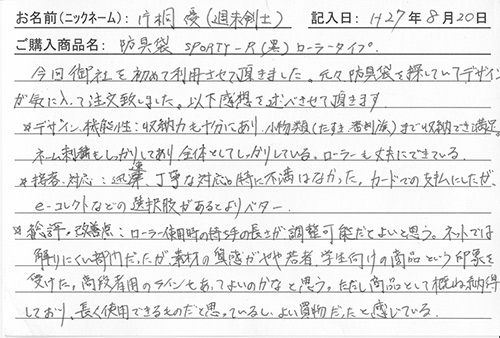 お名前(ニックネーム): 片桐 優(週末剣士) 記入日: H27年8月20日
ご購入商品名: 防具袋 SPORTY-R(黒)ローラータイプ.
今回御社を初めて利用させて頂きました。元々防具袋を探していてデザイン
が気に入って注文致しました。以下感想を述べさせて頂きます
*デザイン、機能性:収納力も十分にあり、小物類(たすき、審判旗)まで収納でき満足。
ネーム刺繍もしっかりしており全体としてしっかりしている。ローラーも丈夫にできている.
*接客、対応:迅速、丁寧な対応。特に不満はなかった。カードでの支払にしたが、
e-コレクトなどの選択肢があるとよりベター.
*総評・改善点:ローラー使用時の持ち手の長さが調整可能だとよいと思う。ネットでは
解りにくい部分だったが素材の質感がやや若者、学生向けの商品という印象を
受けた。高段者用のラインもあってよいのかなと思う。ただし商品として概ね納得
しており、長く使用できるものだと思っているし、よい買物だったと感じている.